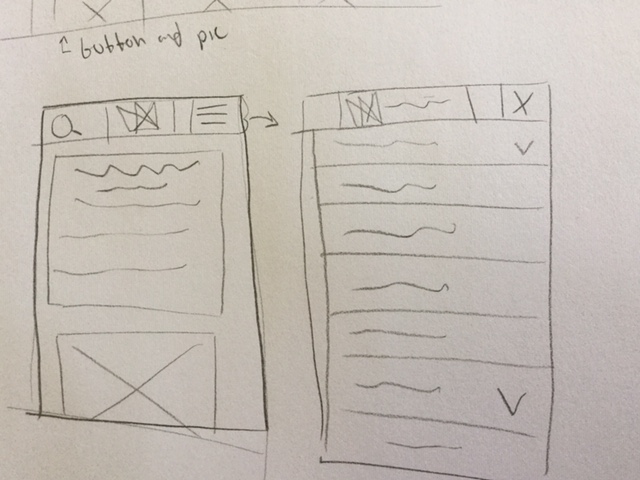 1 button and pic
X